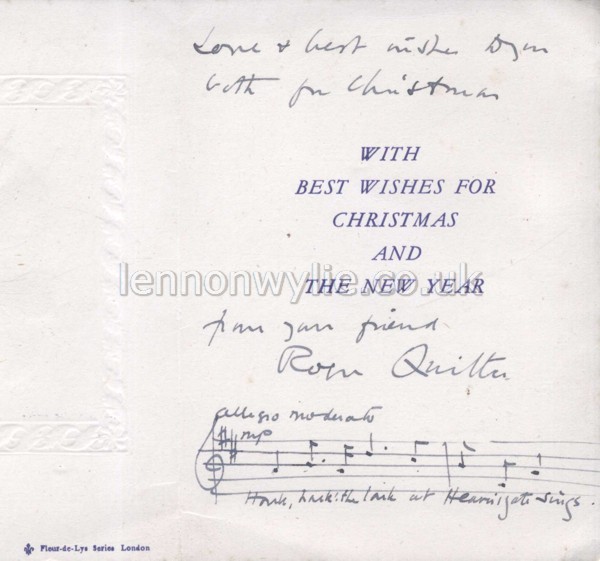 Love & best wishes to you
both for Christmas
WITH
BEST WISHES FOR
CHRISTMAS
AND
THE NEW YEAR
lennonwylie.co.uk
from your friend
Roger Quilter
allegro moderato
mp
Hark, hark! the lark at Heaven's gate sings.
Fleur-de-Lys Series London